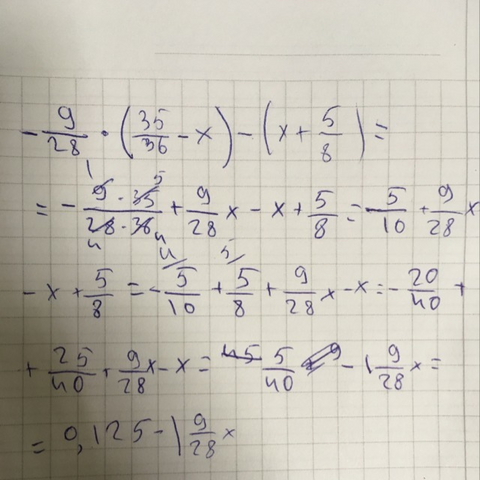 -9/28 · (35/36 - x) - (x + 5/8) =
= - 9 · 35 / 28 · 36 + 9/28 x - x + 5/8 = - 5/10 + 9/28 x
- x + 5/8 = - 5/10 + 5/8 + 9/28 x - x = - 20/40 +
+ 25/40 + 9/28 x - x = 5/40 - 1 9/28 x =
= 0,125 - 1 9/28 x